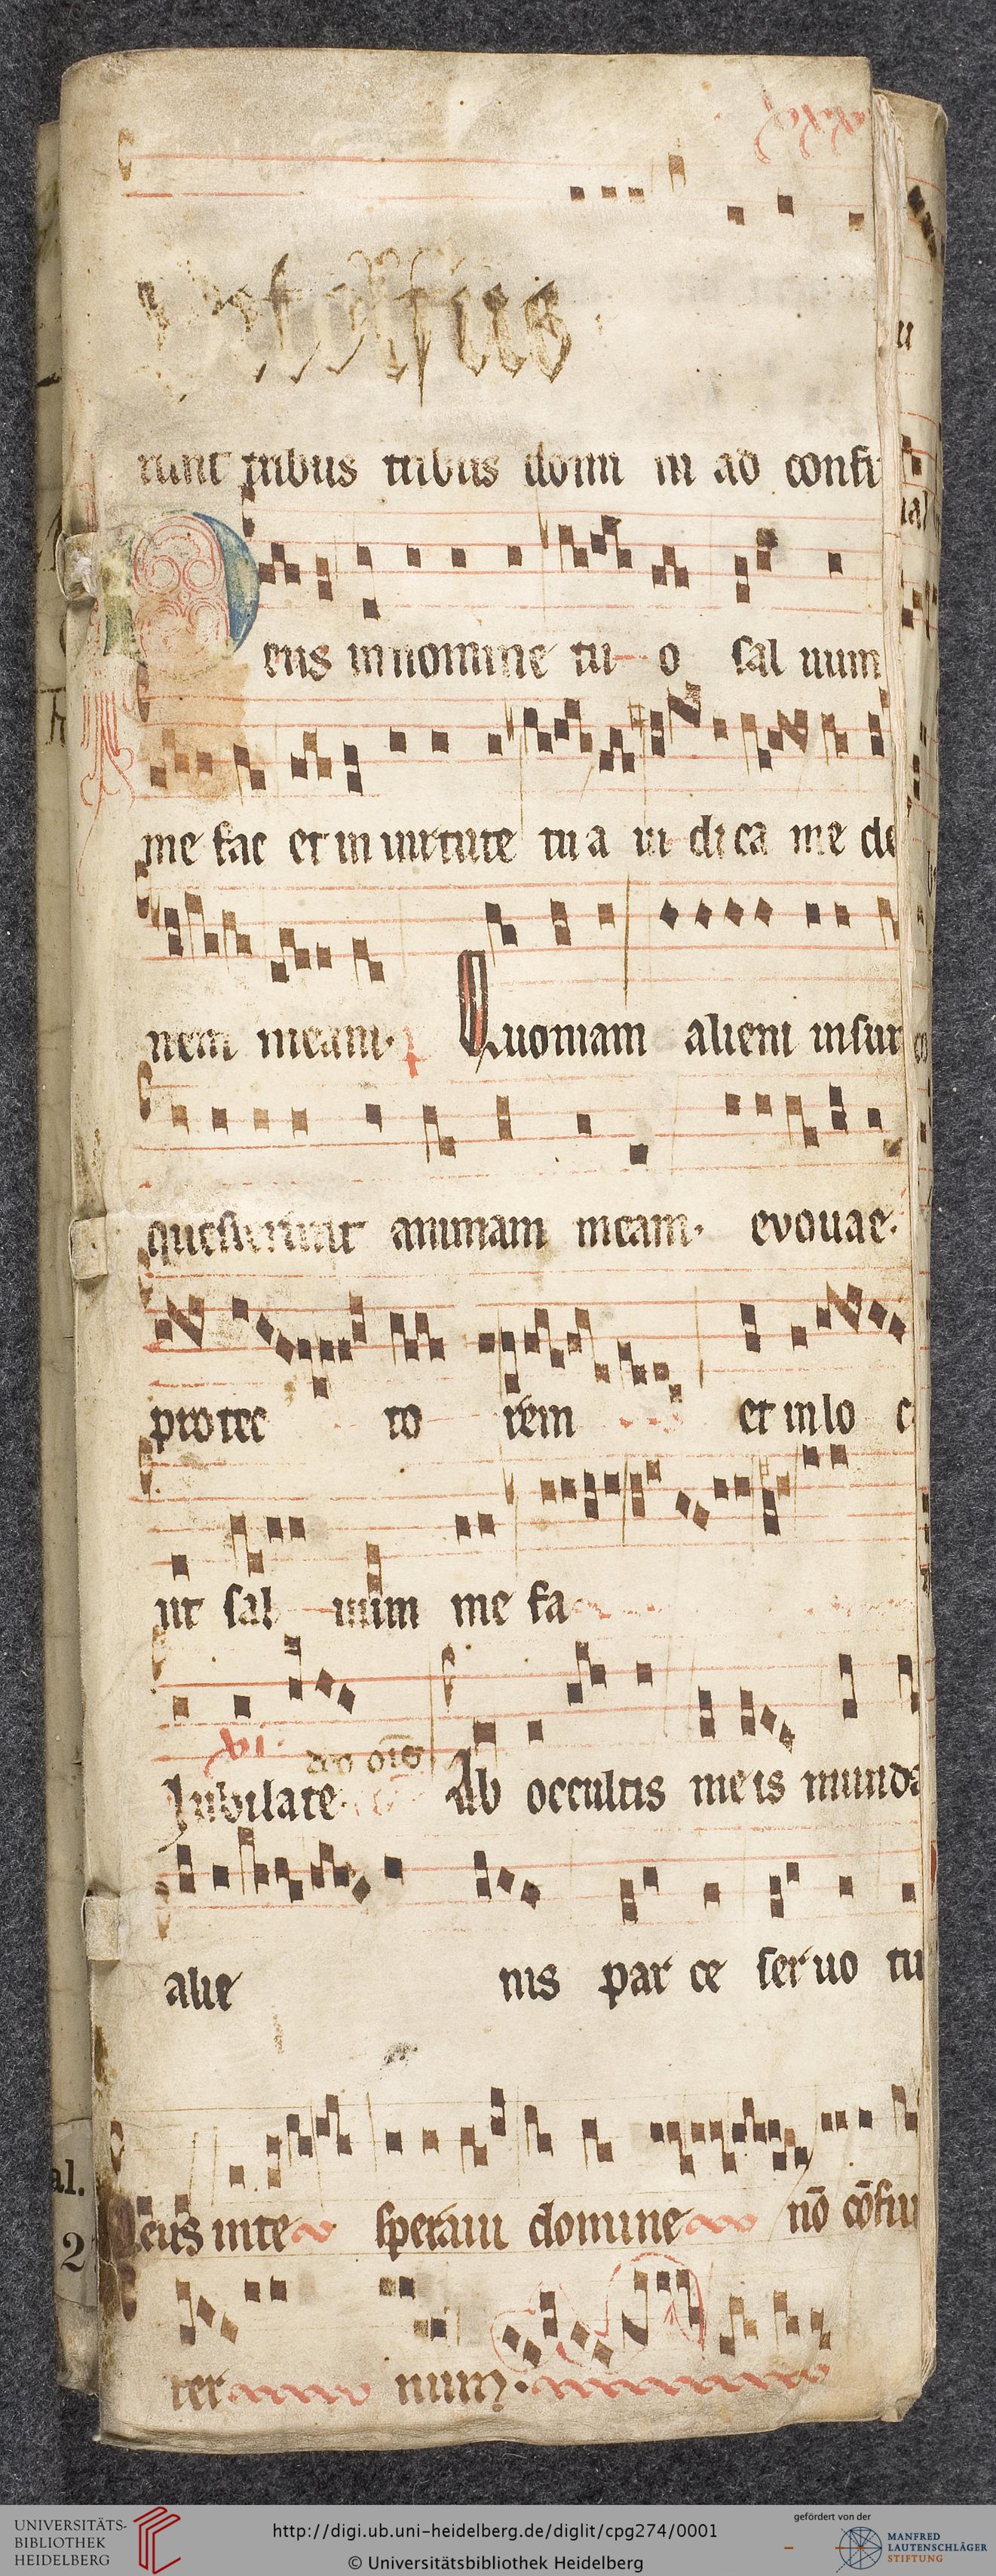 runt tribus tribus domi ni ad confi
Deus in nomine tu o sal uum
me fac et in uirtute tu a iu di ca me de
nem meam. Quoniam alieni insur
quesierunt animam meam. evouae.
pro tec to rem et in lo c
ut sal uum me fa
vi.
deo oīs
Jubilate Ab occultis me is munda
alie nis par ce ser uo tu
Deus in te speraui domine nō cōfun
ter num.
al.
2
UNIVERSITÄTS-
BIBLIOTHEK
HEIDELBERG
http://digi.ub.uni-heidelberg.de/diglit/cpg274/0001
© Universitätsbibliothek Heidelberg
gefördert von der
MANFRED
LAUTENSCHLÄGER
STIFTUNG